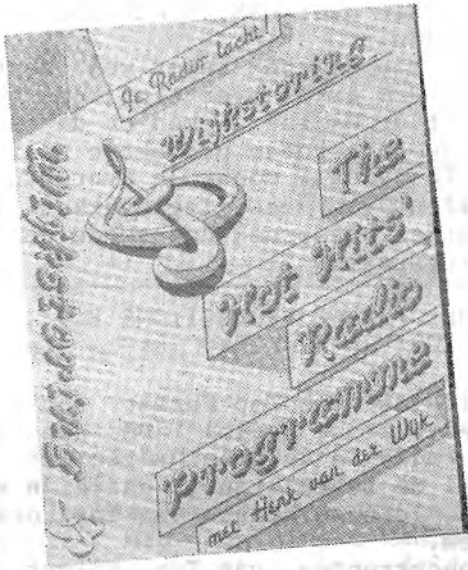 Je Radio lacht
Wijkstoring
The
Hot Hits'
Radio
programme
met Henk van der Wijk
Wijkstoring